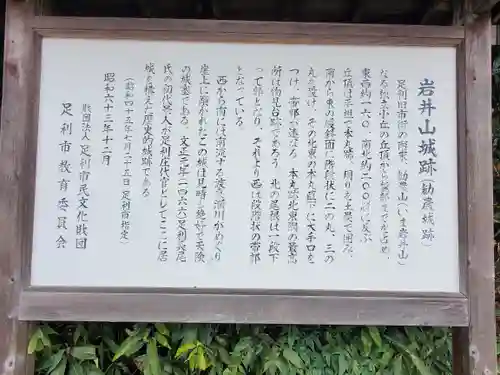 岩井山城跡(勧農城跡)
足利旧市街の南東、勧農山(いま岩井山)
なる独立小丘の丘頂から麓部までを占め、
東西約一六〇、南北約二〇〇㍍に及ぶ
丘頂は平坦で本丸跡、周りを土塁で囲み、
南から東の緩斜面に階段状に二の丸、三の
丸を設け、その北東の本丸直下に大手口を
つけ、帯郭が連なる。本丸跡北東隅の最高
所は物見台跡であろう。北の尾根は一段下
って郭となり、それより西は段階状の帯郭
となっている。
西から南には南流する渡良瀬川がめぐり
崖上に築かれたこの城は見晴し絶好で天険
の城塞である。文正元年(一四六六)足利長尾
氏の初代景人が足利庄代官としてここに居
城を構えた歴史的城跡である
(昭和四十五年七月二十五日 足利市指定)
昭和六十三年十二月
財団法人 足利市民文化財団
足利市教育委員会